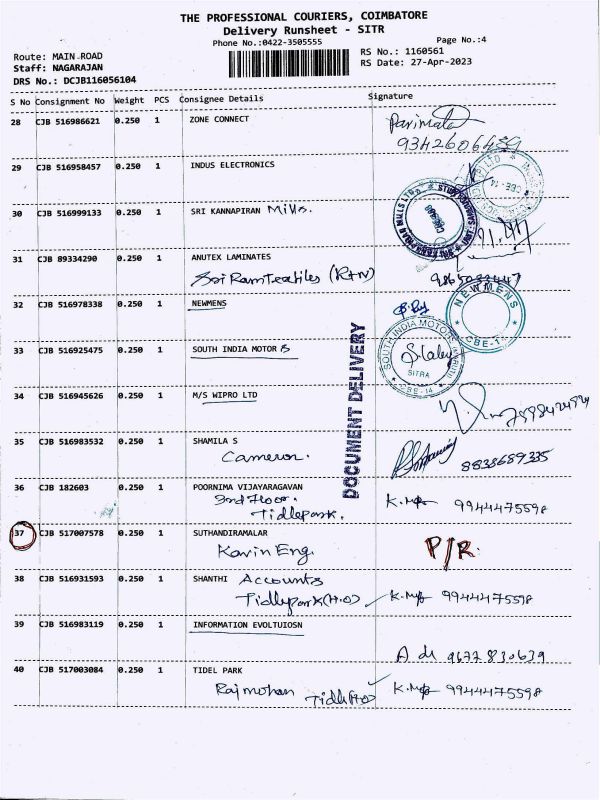 THE PROFESSIONAL COURIERS, COIMBATORE
Delivery Runsheet - SITR
Phone No.:0422-3505555
Page No.:4
Route: MAIN ROAD
RS No.: 1160561
Staff: NAGARAJAN
RS Date: 27-Apr-2023
DRS No.: DCJB116056104
S No Consignment No Weight PCS Consignee Details Signature
28 CJB 516986621 0.250 1 ZONE CONNECT Parimala
9342606439
29 CJB 516958457 0.250 1 INDUS ELECTRONICS
CBE-14
30 CJB 516999133 0.250 1 SRI KANNAPIRAN Mills.
31 CJB 89334290 0.250 1 ANUTEX LAMINATES
Sri Ram Textiles (R+N)
32 CJB 516978338 0.250 1 NEWMENS
NEWMENS
CBE-14
33 CJB 516925475 0.250 1 SOUTH INDIA MOTOR S
SOUTH INDIA MOTORS
SITRA
CBE-14
DOCUMENT DELIVERY
34 CJB 516945626 0.250 1 M/S WIPRO LTD
35 CJB 516983532 0.250 1 SHAMILA S
Cameron. 8838689335
36 CJB 182603 0.250 1 POORNIMA VIJAYARAGAVAN
3rd Floor. 9944475598
Tidlepark.
37 CJB 517007578 0.250 1 SUTHANDIRAMALAR
Kavin Eng. P/R.
38 CJB 516931593 0.250 1 SHANTHI Accounts
Tidlepark (H.O) 9944475598
39 CJB 516983119 0.250 1 INFORMATION EVOLTUIOSN
9677830639
40 CJB 517003084 0.250 1 TIDEL PARK
Rajmohan 9944475598